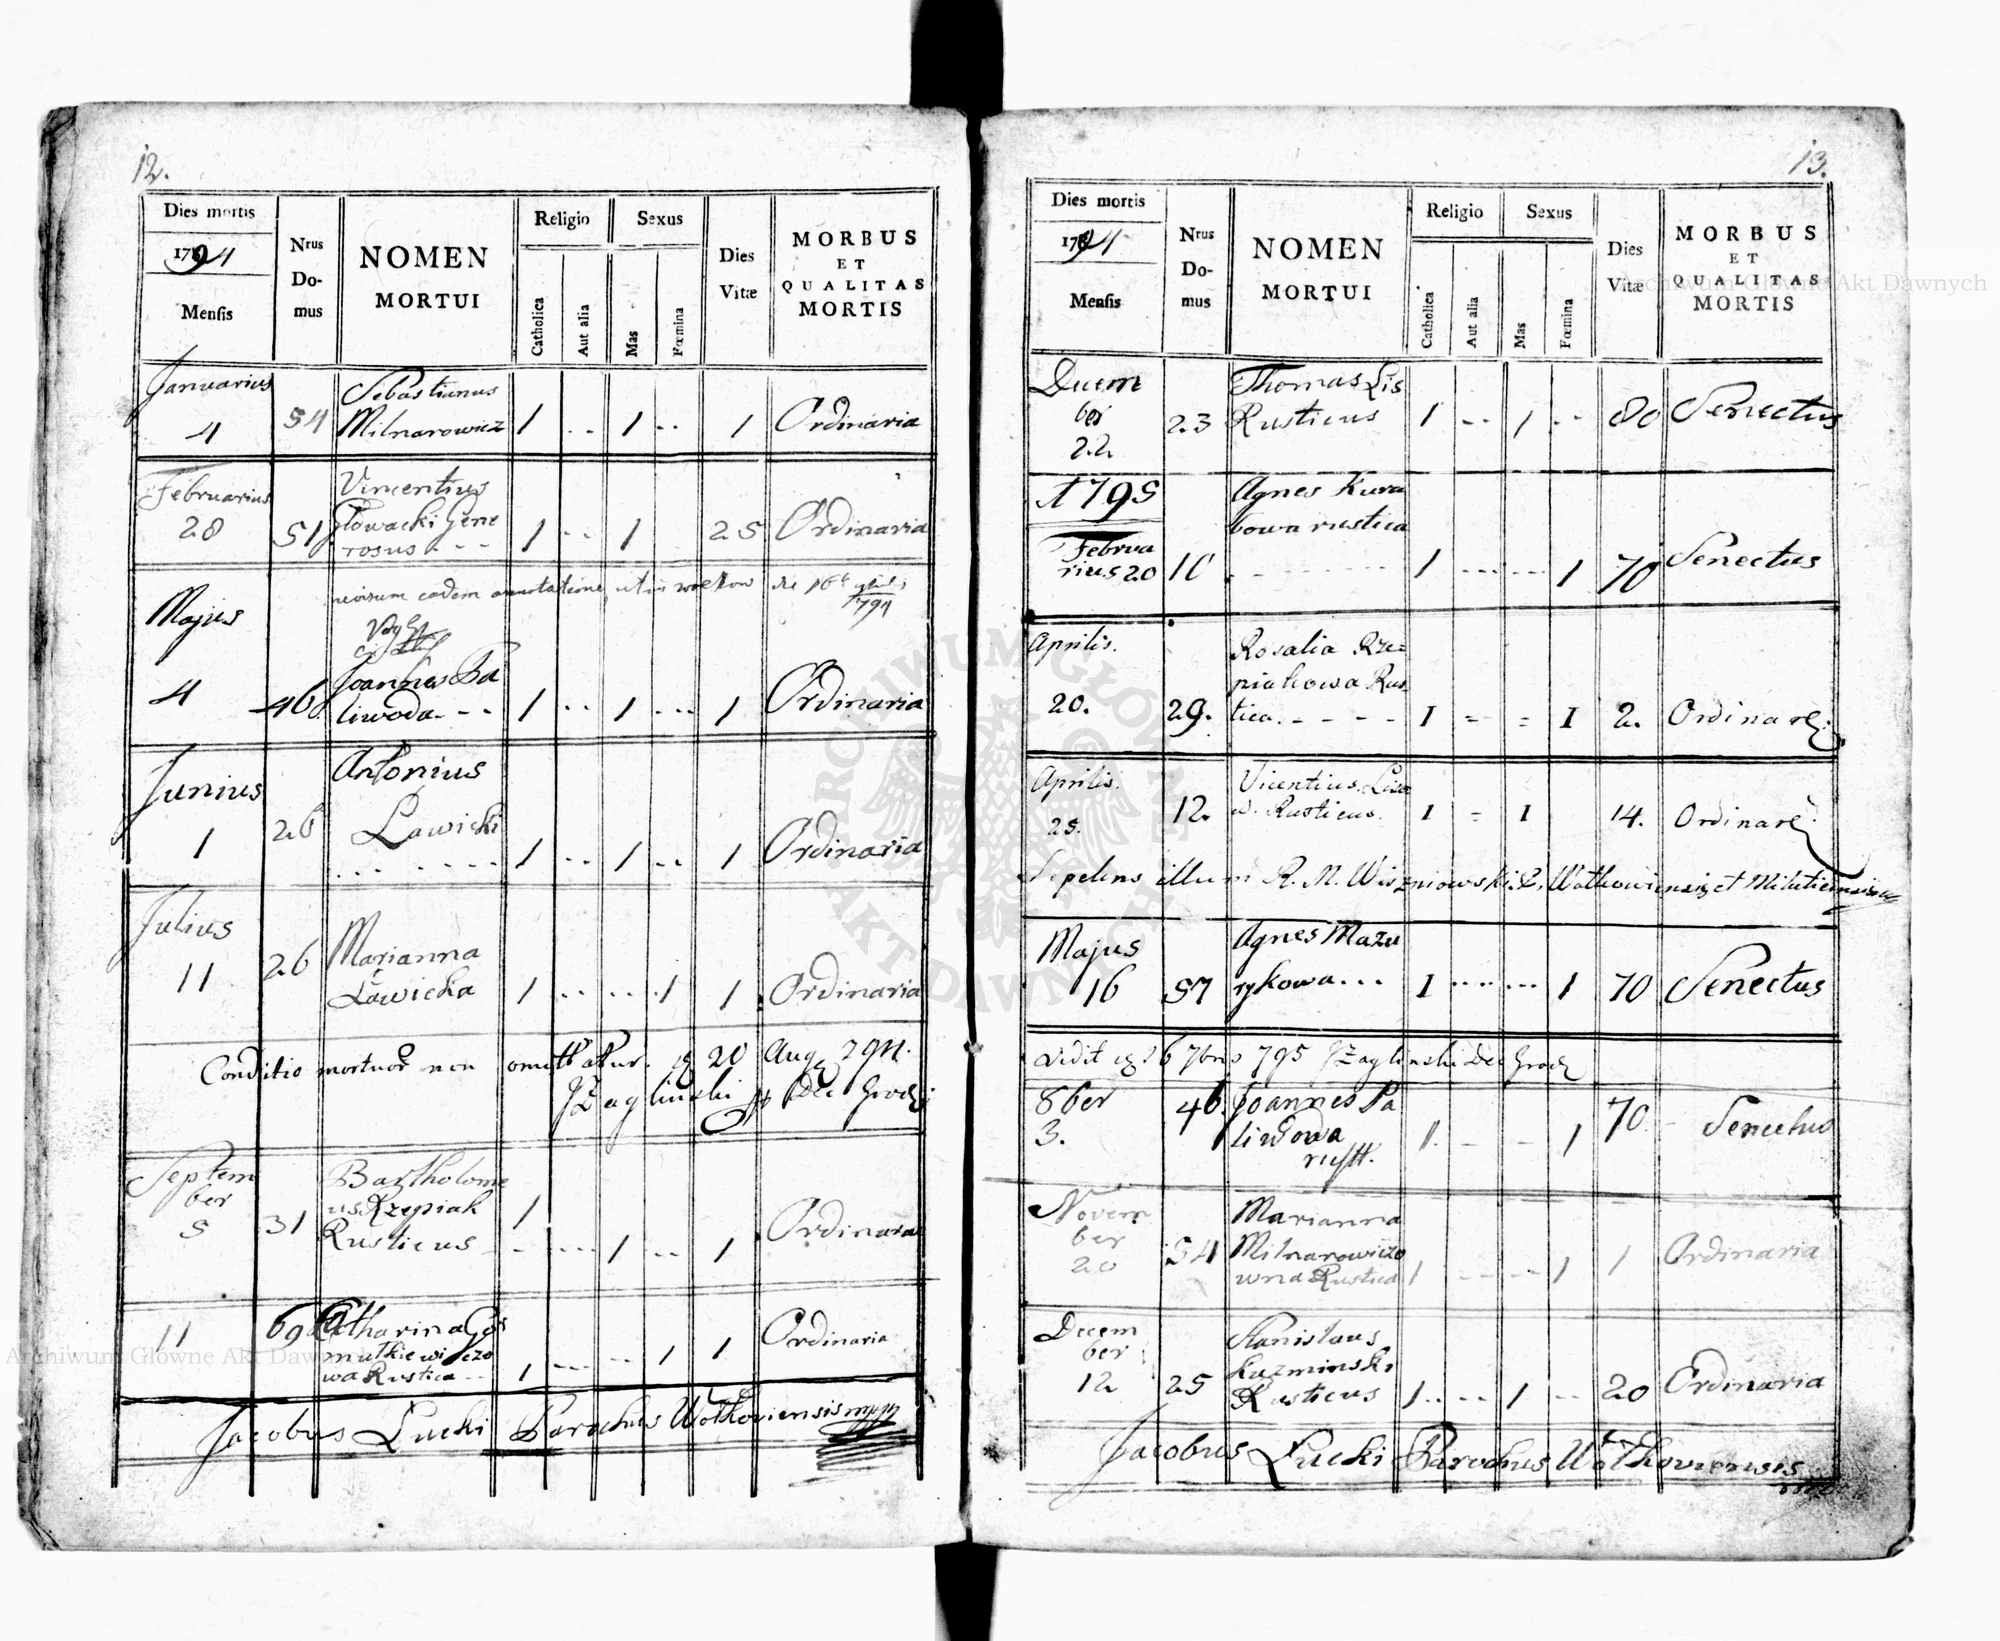 12.
Dies mortis
1794
Mensis
Nrus Do-mus
NOMEN
MORTUI
Religio
Catholica
Aut alia
Sexus
Mas
Fœmina
Dies
Vitæ
MORBUS
ET
QUALITAS
MORTIS
Januarius
Sebastianus
4 54 Milnarowicz 1 .. 1 .. 1 Ordinaria
Februarius
Vincentius
28 51 Głowacki Gene 1 .. 1 25 Ordinaria
rosus - - -
Majus
revisum eadem annotatione, ut in
1794
Joannes Pa
4 46 liwoda - - 1 .. 1 ... 1 Ordinaria
Junius
Antonius
1 26 Lawicki
... .... 1 .. 1 .. 1 Ordinaria
Julius
11 26 Marianna
Ławicka 1 .. ... 1 1 Ordinaria
Conditio mortuor non omittatur. 20 Aug 794.
JŻaglinski Dec Grod
Septem
ber
5 31
Bartholome
us Rzepiak 1
Rusticus - - ... 1 .. 1 Ordinaria
11 69 Catharina Gos
mulkiewiczo
wa Rustica -- 1 ... .. 1 1 Ordinaria
Jacobus Lucki Parochus Wołkoviensis mpp
13.
Dies mortis
1794
Mensis
Nrus
Do-
mus
NOMEN
MORTUI
Religio
Catholica
Aut alia
Sexus
Mas
Fœmina
Dies
Vitæ
MORBUS
ET
QUALITAS
MORTIS
Decem
ber
22
Thomas Lis
23 Rusticus 1 .. 1 .. 80 Senectus
A 1795
Agnes Kura
bowa rustica
Februa
rius 20 10 1 ... ... 1 70 Senectus
Aprilis.
Rosalia Rze=
piakowa Rus
20. 29. tica. - - - - 1 = = 1 2. Ordinare.
Aprilis.
25. 12. Vicentius
Rusticus. 1 = 1 14. Ordinare.
Sepeliens illum R. M. Wiszniowski Wołkoviensis et Milaticensis
Majus
16 57
Agnes Mazu
rykowa... 1 .... ... 1 70 Senectus
Vidit 16 7bris 795 JŻaglinski Dec Grod
8ber
3. 46.
Joannes Pa
liwowa
rustt. 1. - - 1 70 - Senectus
Novem
ber
20 54
Marianna
Milnarowiczo
wna Rustica 1 .. .. 1 1 Ordinaria
Decem
ber
12 25
Stanislaus
Kuzminski
Rusticus 1.. .. 1 .. 20 Ordinaria
Jacobus Lucki Parochus Wołkoviensis
mpp
Archiwum Główne Akt Dawnych
Archiwum Główne Akt Dawnych
ARCHIWUM GŁÓWNE
AKT DAWNYCH